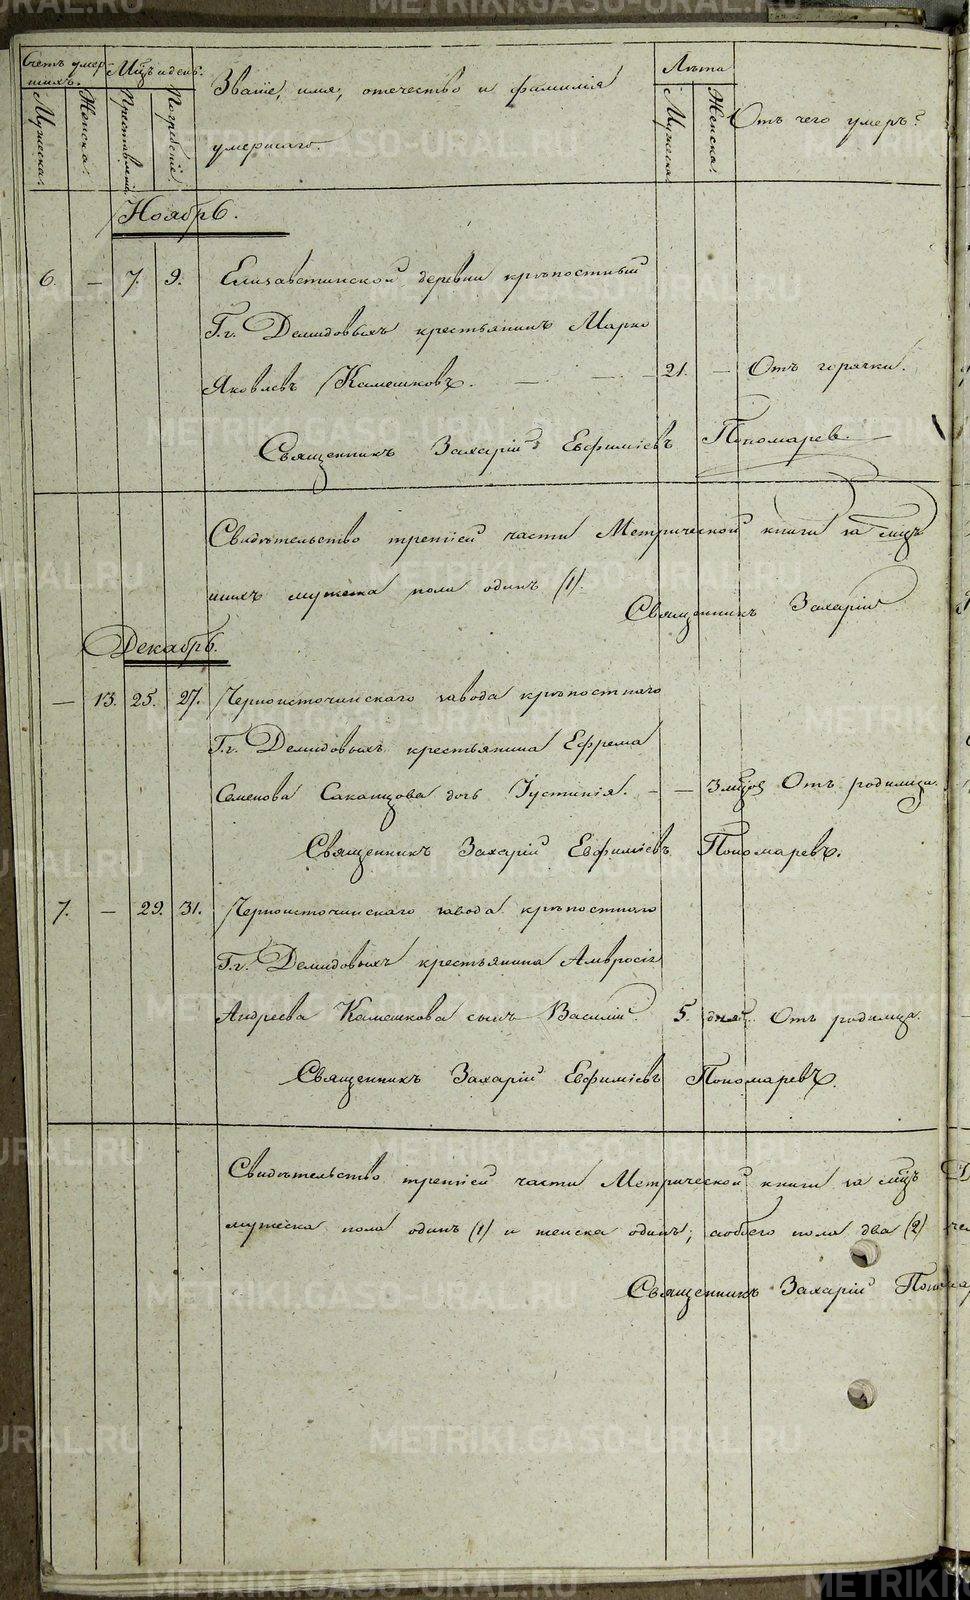 Счетъ умер
шихъ.
Мцъ и день.
Званіе, имя, отечество и фамилія
умершаго.
Лѣта
Отъ чего умеръ?
Мужеска.
Женска.
Преставленія
Погребенія
Мужеска.
Женска.
Ноябрь.
6. — 7. 9. Елизаветинской деревни крѣпостный
Г.г. Демидовыхъ крестьянинъ Марко
Яковлевъ Камешковъ. — — 21. — Отъ горячки.
Священникъ Захарій Евфиміевъ Пономарев.
Свидѣтельство третіей части Метрической книги за мцъ
шихъ мужеска пола одинъ (1).
Священникъ Захарій
Декабрь.
— 13. 25. 27. Черноисточинскаго завода крѣпостнаго
Г.г. Демидовыхъ крестьянина Ефрема
Семенова Саканцова дочь Іустинія. — — 3 мцов Отъ родимца.
Священникъ Захарій Евфиміевъ Пономаревъ.
7. — 29. 31. Черноисточинскаго завода крѣпостнаго
Г.г. Демидовыхъ крестьянина Амвросія
Андреева Камешкова сынъ Василій. 5. дней. Отъ родимца.
Священникъ Захарій Евфиміевъ Пономаревъ.
Свидѣтельство третіей части Метрической книги за мцъ
мужеска пола одинъ (1) и женска одинъ; а обоего пола два (2)
Священникъ Захарій
METRIKI.GASO-URAL.RU